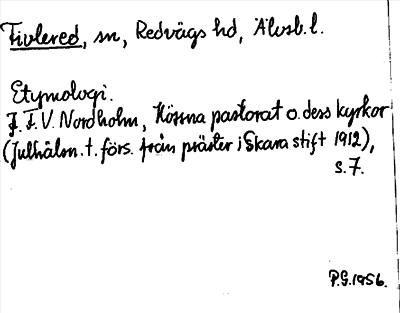 Fivlered, sn, Redvägs hd, Älvsb. l.
Etymologi.
J. F. V. Nordholm, Hössna pastorat o. dess kyrkor
(Julhälsn. t. förs. från präster i Skara stift 1912),
s. 7.
P.G. 1956.